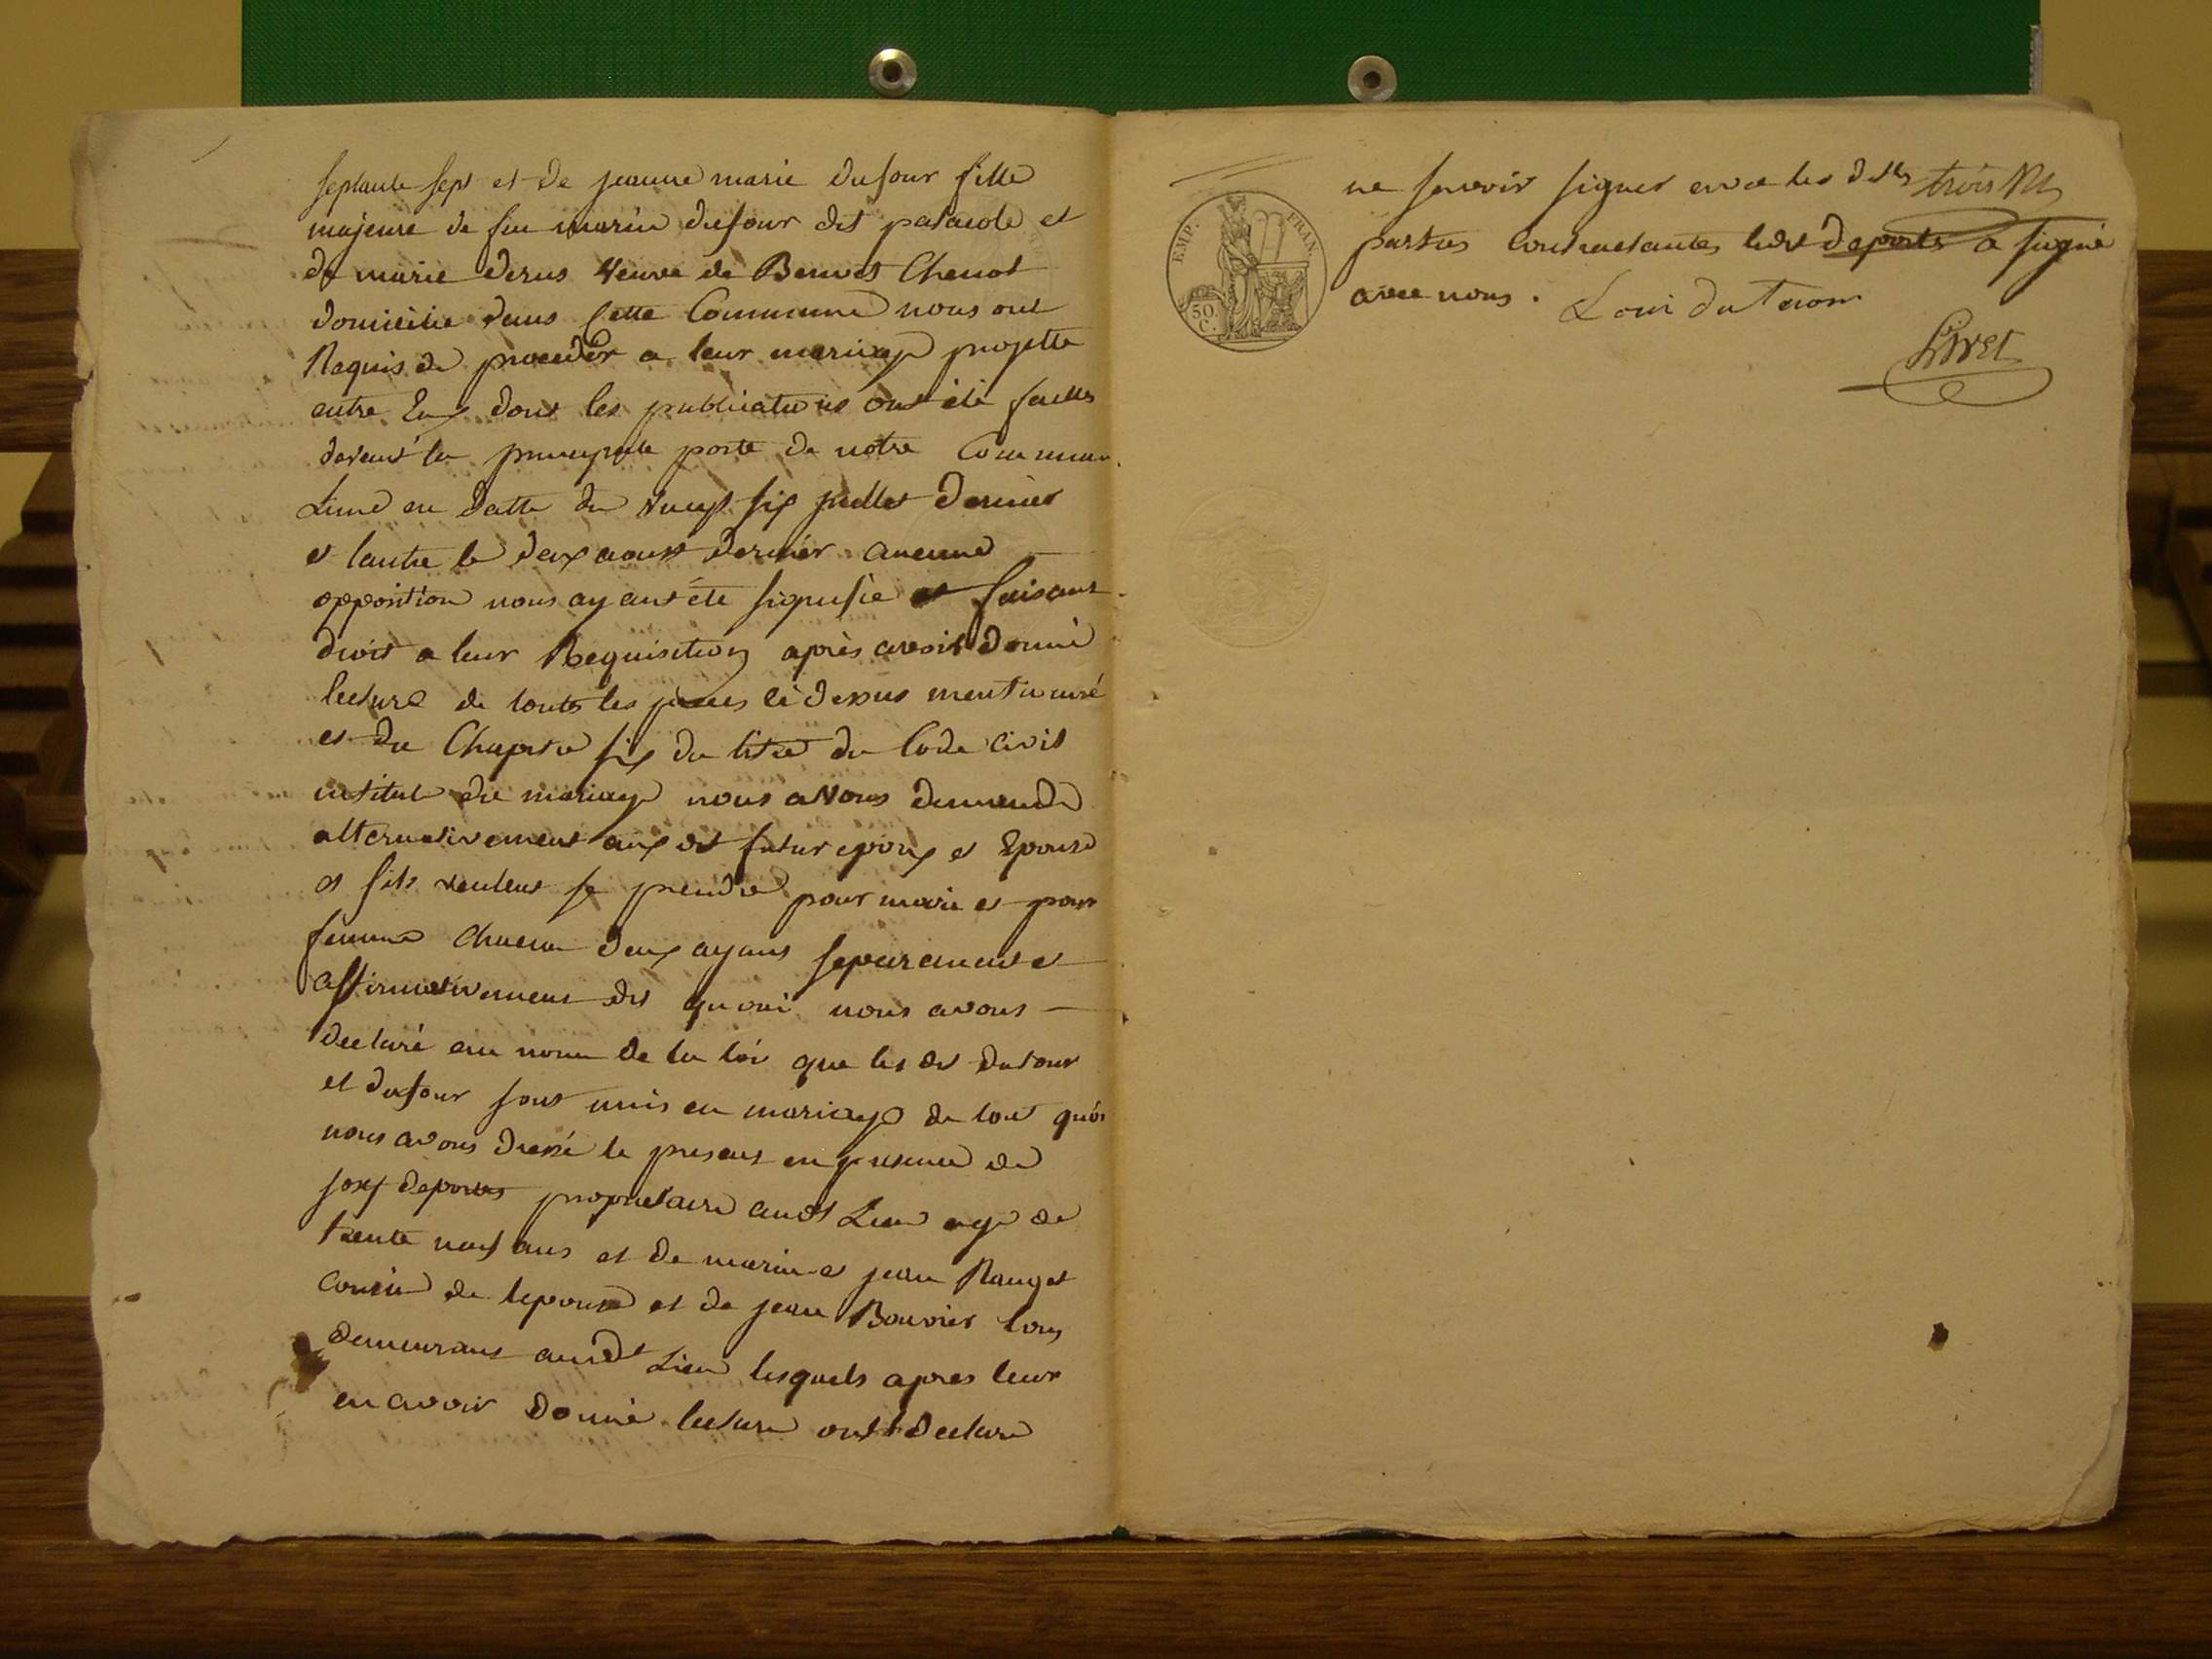 septante sept et de jeanne marie dufour fille
majeure de feu marin dufour dit patacole et
de marie derus veuve de Benoit Chenot
domicilie dans cette Commune nous ont
Requis de proceder a leur mariage projette
entre Eux dont les publications ont été faittes
devant la principale porte de notre Commune
Lune en datte du vingt six juillet dernier
et lautre le deux aoust dernier aucune
opposition nous ayant été signifiée et faisant
droit a leur Requisition après avoir donné
lecture de toutes les pieces cÿ dessus mentionné
et du Chapitre six du titre du Code Civil
intitulé du mariage nous avons demandé
alternativement aux dt futur epoux et Epouse
et sils veulent se prendre pour marie et pour
femme chacun deux ayant separement et
affirmativement dit quoui nous avons
declaré au nom de la loi que les dt dutour
et dufour sont unis en mariage de tout quoi
nous avons dressé le present en presence de
josf deportes propriétaire audt Lieu agé de
trente neuf ans et de marin et jean Rauget
cousin de lepouse et de jean Bouvier tous
demeurans audt Lieu lesquels apres leur
en avoir donné lecture ont declaré
ne savoir signer en ce les dits trois
parties contractantes ledt deports a signé
avec nous. Loui du
EMP. FRAN.
50 C.